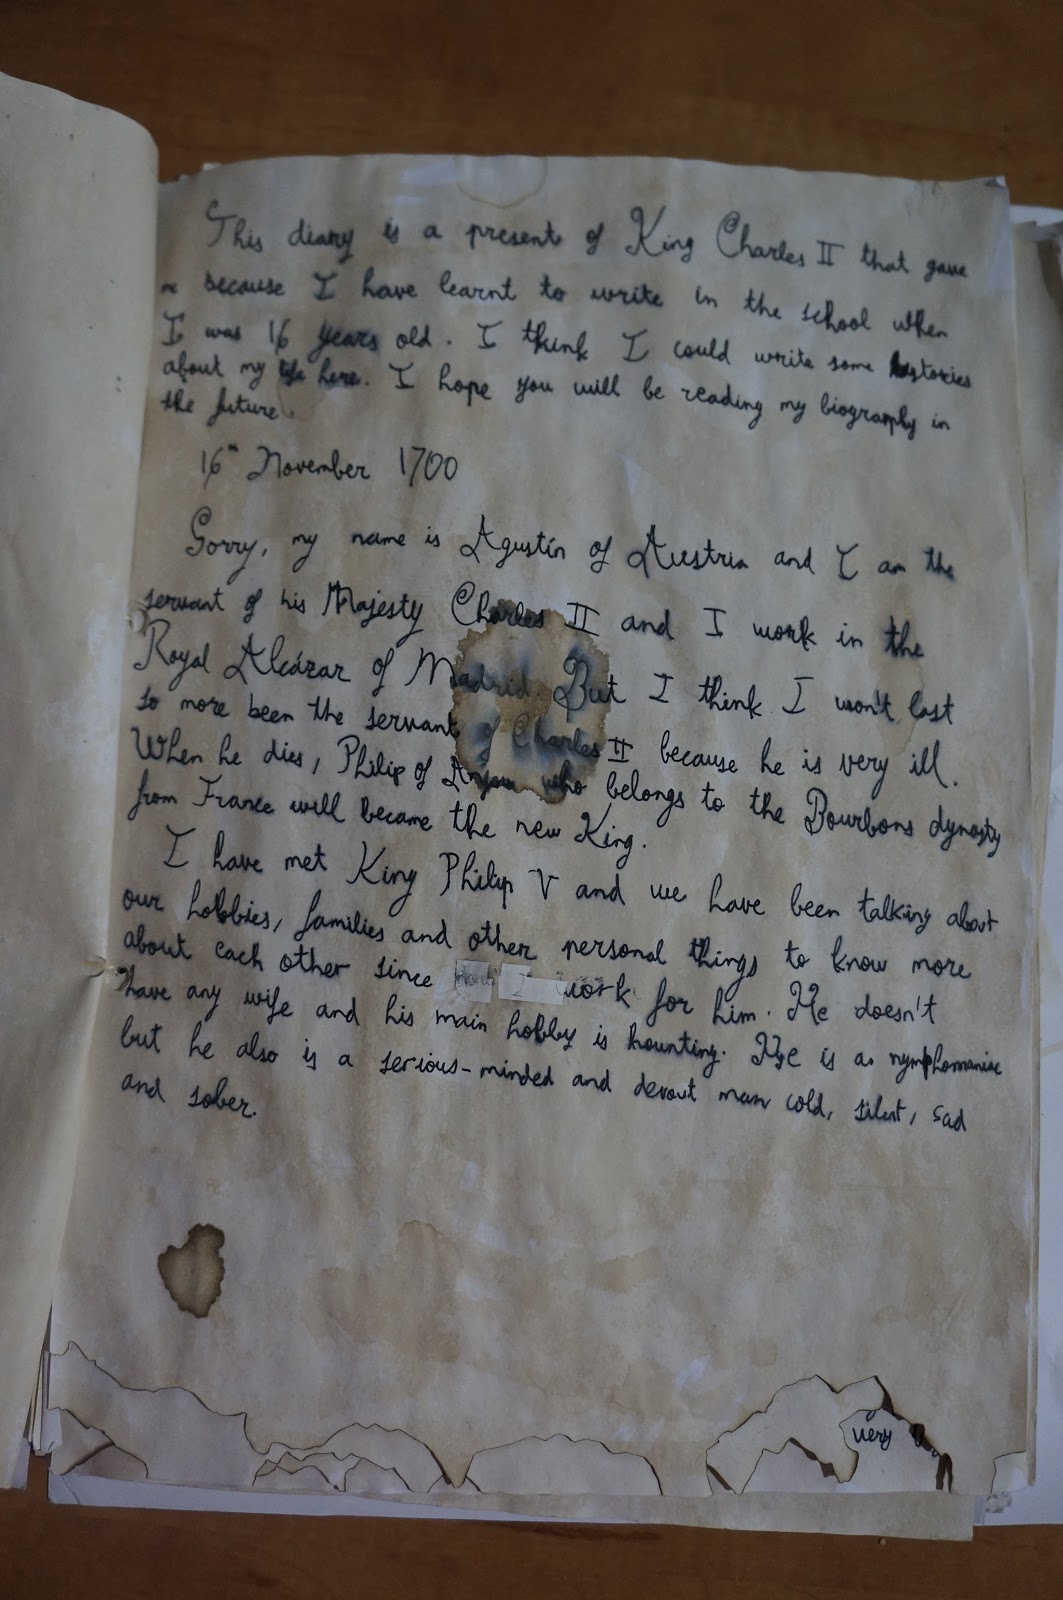 This diary is a present of King Charles II that gave
me because I have learnt to write in the school when
I was 16 years old. I think I could write some histories
about my life here. I hope you will be reading my biography in
the future.
16th November 1700
Sorry, my name is Agustín of Austria and I am the
servant of his Majesty Charles II and I work in the
Royal Alcázar of Madrid. But I think I won't last
so more been the servant of Charles II because he is very ill.
When he dies, Philip of Anjou who belongs to the Bourbons dynasty
from France will became the new King.
I have met King Philip V and we have been talking about
our hobbies, families and other personal things to know more
about each other since I work for him. He doesn't
have any wife and his main hobby is hounting. He is a nymphomaniac
but he also is a serious-minded and devout man cold, silent, sad
and sober.
very